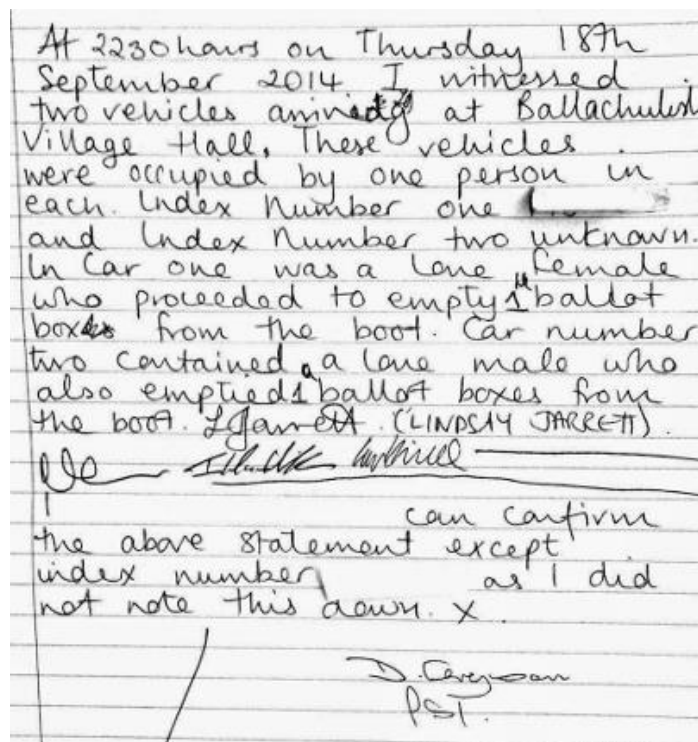 At 2230hours on Thursday 18th
September 2014 I witnessed
two vehicles at Ballachulish
Village Hall. These vehicles
were occupied by one person in
each. Index Number one
and Index Number two unknown.
In Car one was a lone female
who proceeded to empty 1 ballot
from the boot. Car number
two contained a lone male who
also emptied 1 ballot boxes from
the boot. LJarrett. (LINDSAY JARRETT).
I can confirm
the above statement except
index number as I did
not note this down. x.
D. Ferguson